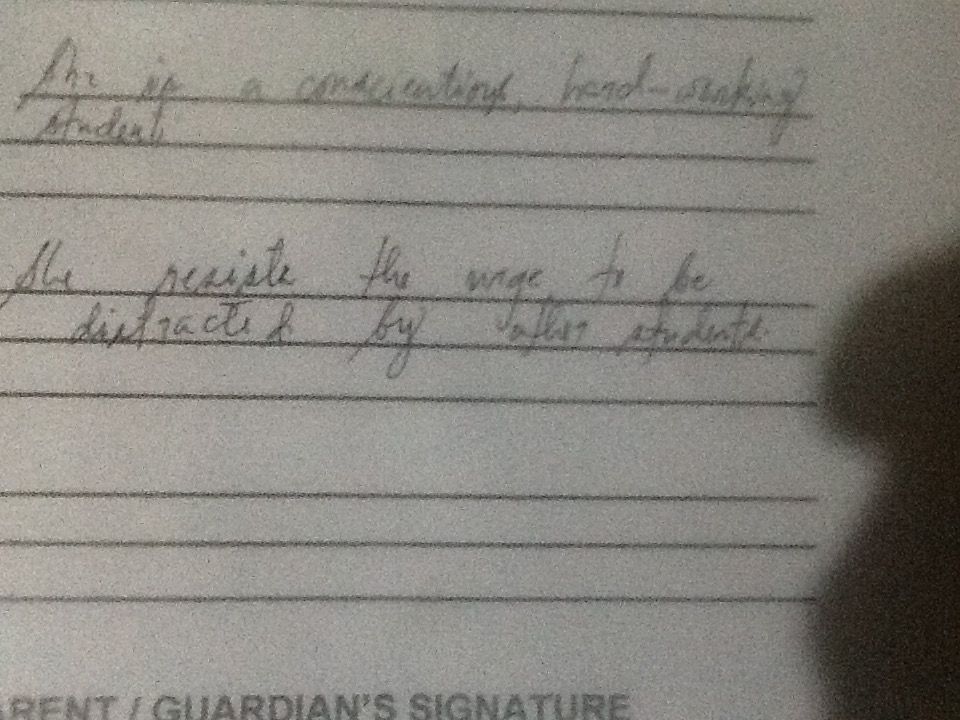 She is a conscientious, hard-working
student
She resists the urge to be
distracted by other students.
ARENT / GUARDIAN'S SIGNATURE